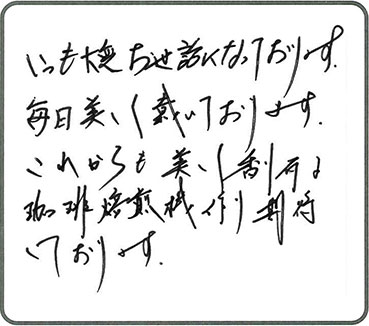 いつも大変お世話になっております.
毎日美しく戴いております.
これからも美しく香り有る
珈琲焙煎機作り期待
しております.